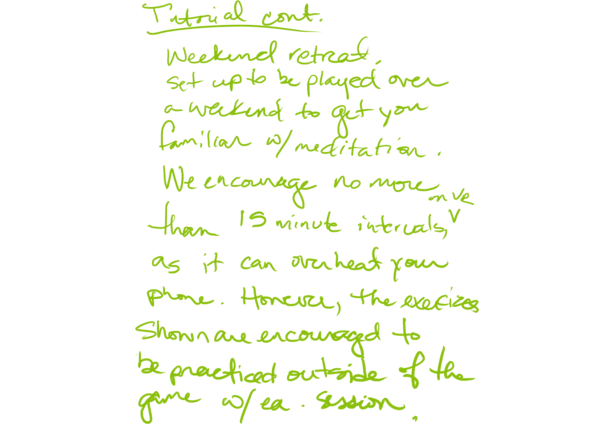 Tutorial cont.
Weekend retreat.
set up to be played over
a weekend to get you
familiar w/ meditation.
We encourage no more
than 15 minute intervals, in VR
as it can overheat your
phone. However, the exercizes
shown are encouraged to
be practiced outside of the
game w/ ea. session.